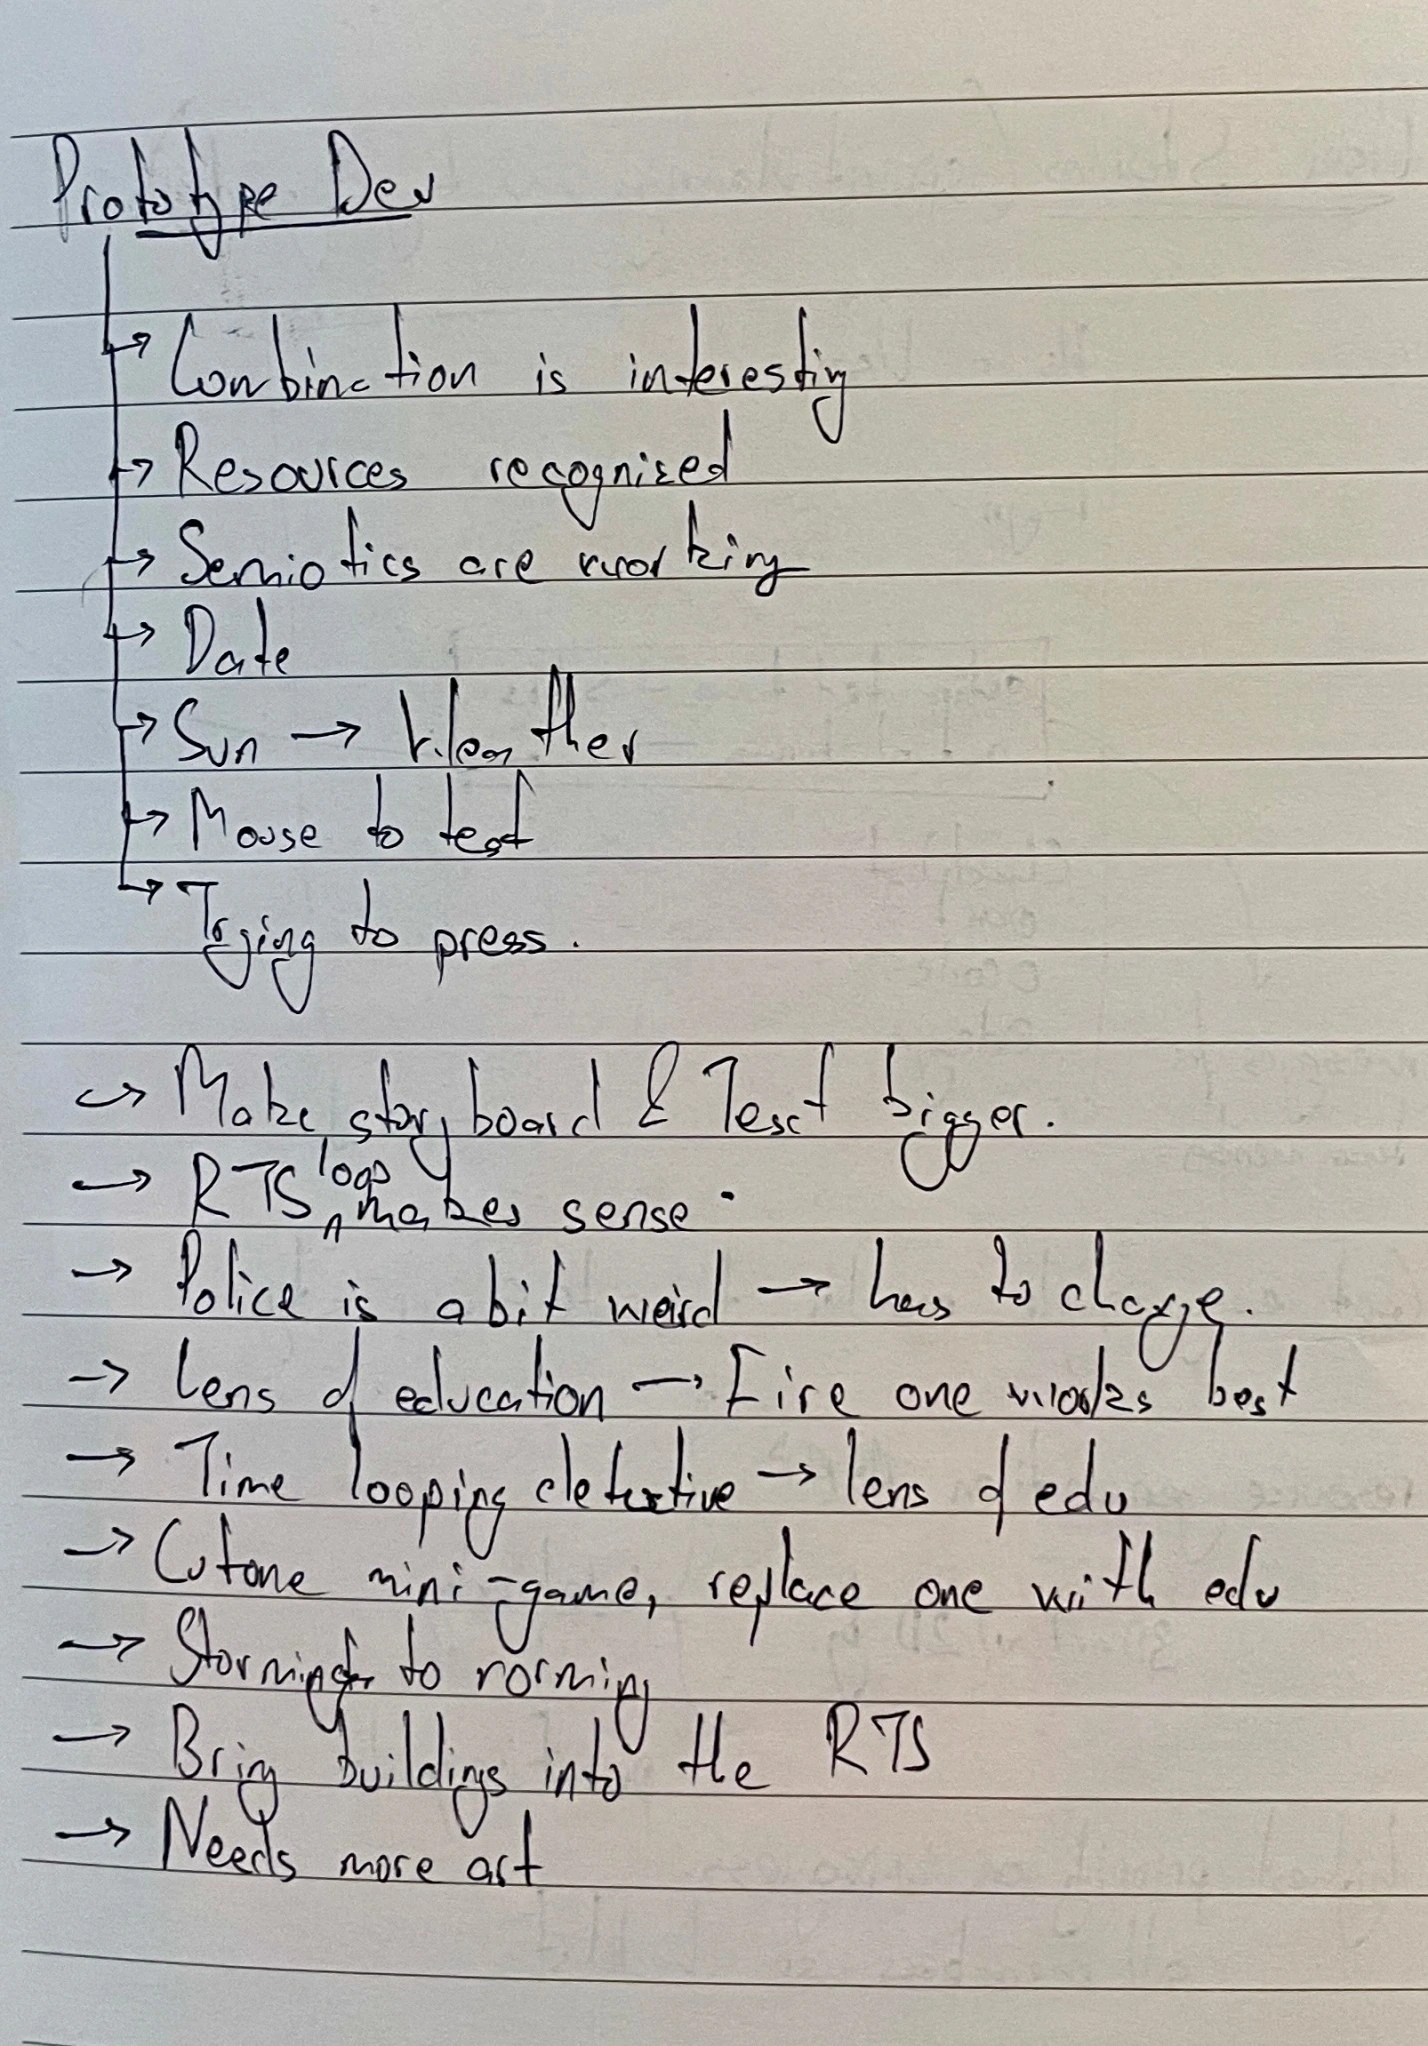 Prototype Dev
→ Combination is interesting
→ Resources recognised
→ Semiotics are working
→ Date
→ Sun → Weather
→ Mouse to test
→ Trying to press.
→ Make storyboard & Test bigger.
→ RTS loops makes sense.
→ Police is a bit weird → has to change.
→ Lens of education → Fire one works best
→ Time looping detective → lens of edu
→ Cut one mini-game, replace one with edu
→ Storming to norming
→ Bring buildings into the RTS
→ Needs more art